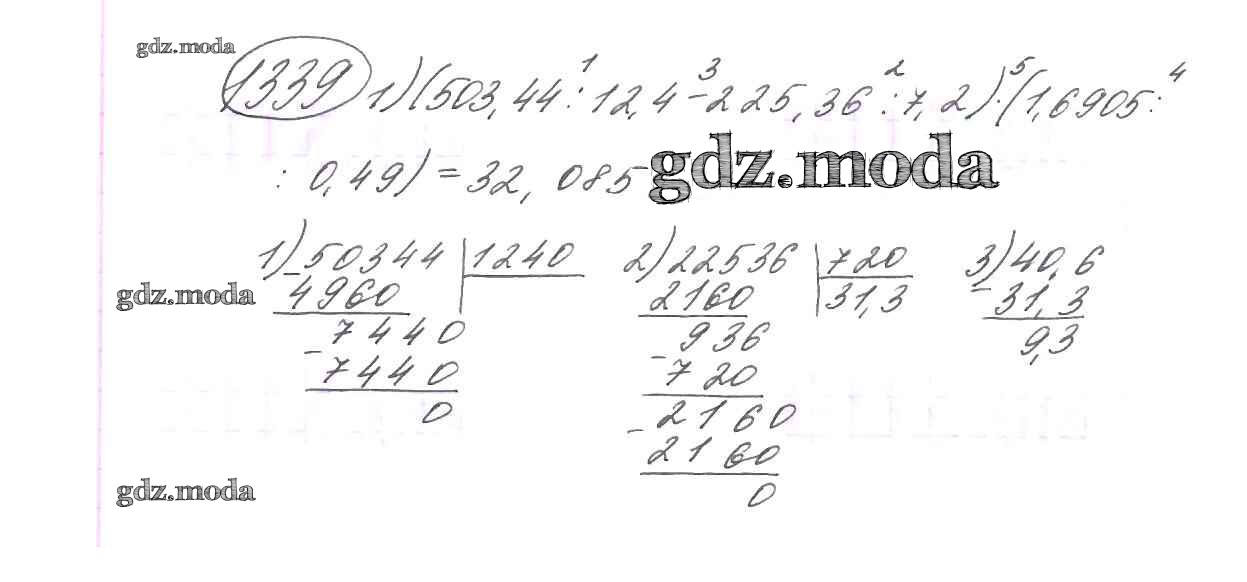 gdz.moda
1339 1) (503,44 : 12,4 - 225,36 : 7,2) · (1,6905 :
1 3 2 5 4
: 0,49) = 32,085
gdz.moda
1) 50344 | 1240 2) 22536 | 720 3) 40,6
gdz.moda - 4960 2160 31,3 - 31,3
7440 936 9,3
- 7440 - 720
0 - 2160
2160
gdz.moda 0